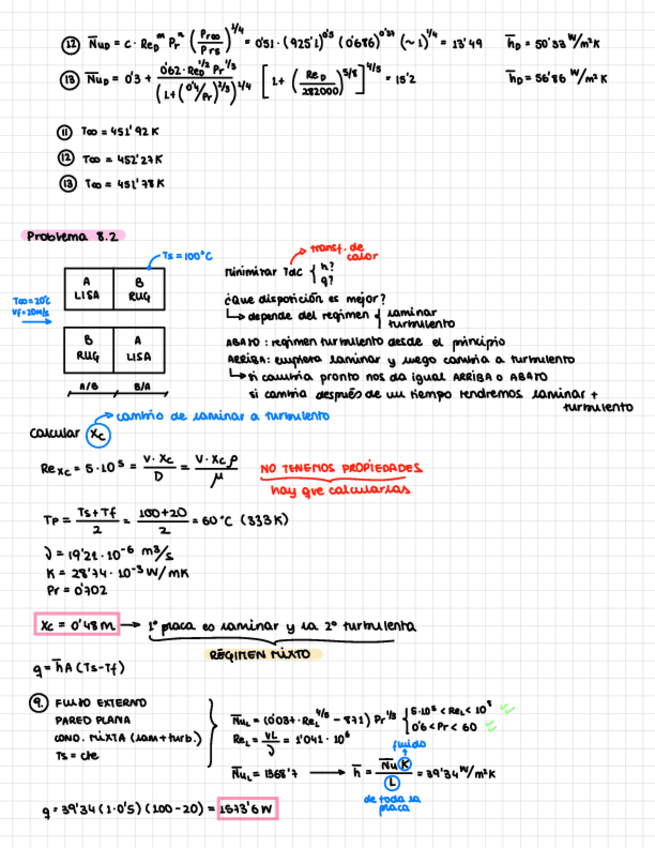 ⑫ N̅u_D = C · Re_D^m Pr^n (Pr∞/Prs)^1/4 = 0'51 · (925'1)^0'5 (0'686)^0'37 (~1)^1/4 = 13'49 h̅_D = 50'33 W/m²K
⑬ N̅u_D = 0'3 + 0'62 · Re_D^1/2 Pr^1/3 / (1+(0'4/Pr)^2/3)^1/4 [1+(Re_D/282000)^5/8]^4/5 = 15'2 h̅_D = 56'86 W/m²K
⑪ T∞ = 451'92 K
⑫ T∞ = 452'27 K
⑬ T∞ = 451'78 K
Problema 8.2
Ts = 100°C
T∞ = 20°C
Vf = 20m/s
A LISA
B RUG
B RUG
A LISA
A/B B/A
transf. de calor
minimizar TdC { h? q?
¿Que disposición es mejor?
↳ depende del regimen { laminar turbulento
ABAJO : regimen turbulento desde el principio
ARRIBA: empieza laminar y luego cambia a turbulento
↳ si cambia pronto nos da igual ARRIBA o ABAJO
si cambia después de un tiempo tendremos laminar + turbulento
calcular Xc → cambio de laminar a turbulento
Re_Xc = 5·10⁵ = V·Xc/D = V·Xc ρ/μ
NO TENEMOS PROPIEDADES
hay que calcularlas
TP = Ts+Tf/2 = 100+20/2 = 60°C (333K)
ν = 19'21·10⁻⁶ m²/s
K = 28'74·10⁻³ W/mK
Pr = 0'702
Xc = 0'48m → 1ª placa es laminar y la 2ª turbulenta
RÉGIMEN MIXTO
q = h̅A (Ts-Tf)
⑨ FLUJO EXTERNO
PARED PLANA
COND. MIXTA (lam+turb.)
Ts = cte
N̅u_L = (0'037·Re_L^4/5 - 871) Pr^1/3 { 5·10⁵ < Re_L < 10⁸ ✓
0'6 < Pr < 60 ✓
Re_L = VL/ν = 1'041·10⁶
fluido
N̅u_L = 1368'7 → h̅ = N̅u K/L = 39'34 W/m²K
de toda la placa
q = 39'34 (1·0'5) (100-20) = 1573'6 W